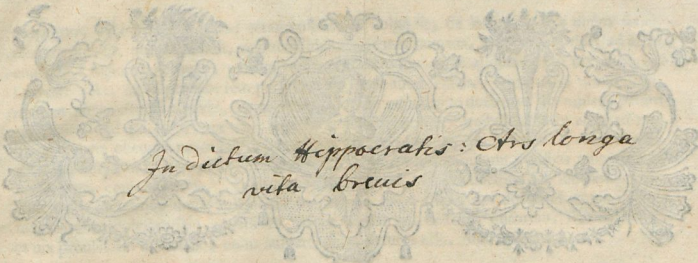 In dictum Hippocratis: Ars longa
vita breuis